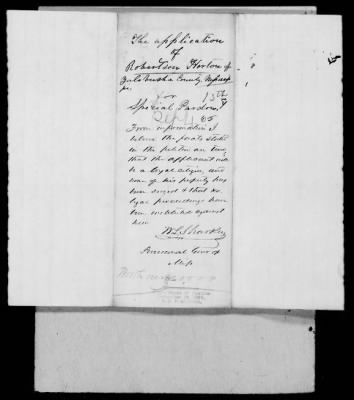 The application
of
Robertson Horton of
Yalobusha County Mississip
pi.
for
Special Pardon.
65
From information I
believe the facts stated
in the petition are true,
that the applicant will
be a loyal citizen, and
none of his property has
been seized & that no
legal proceedings have
been instituted against
him
W L Sharkey
Provisional Govr of
Miss